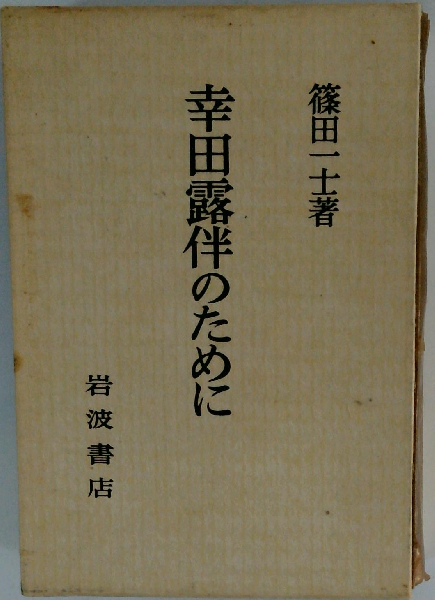 篠田一士著
幸田露伴のために
岩波書店